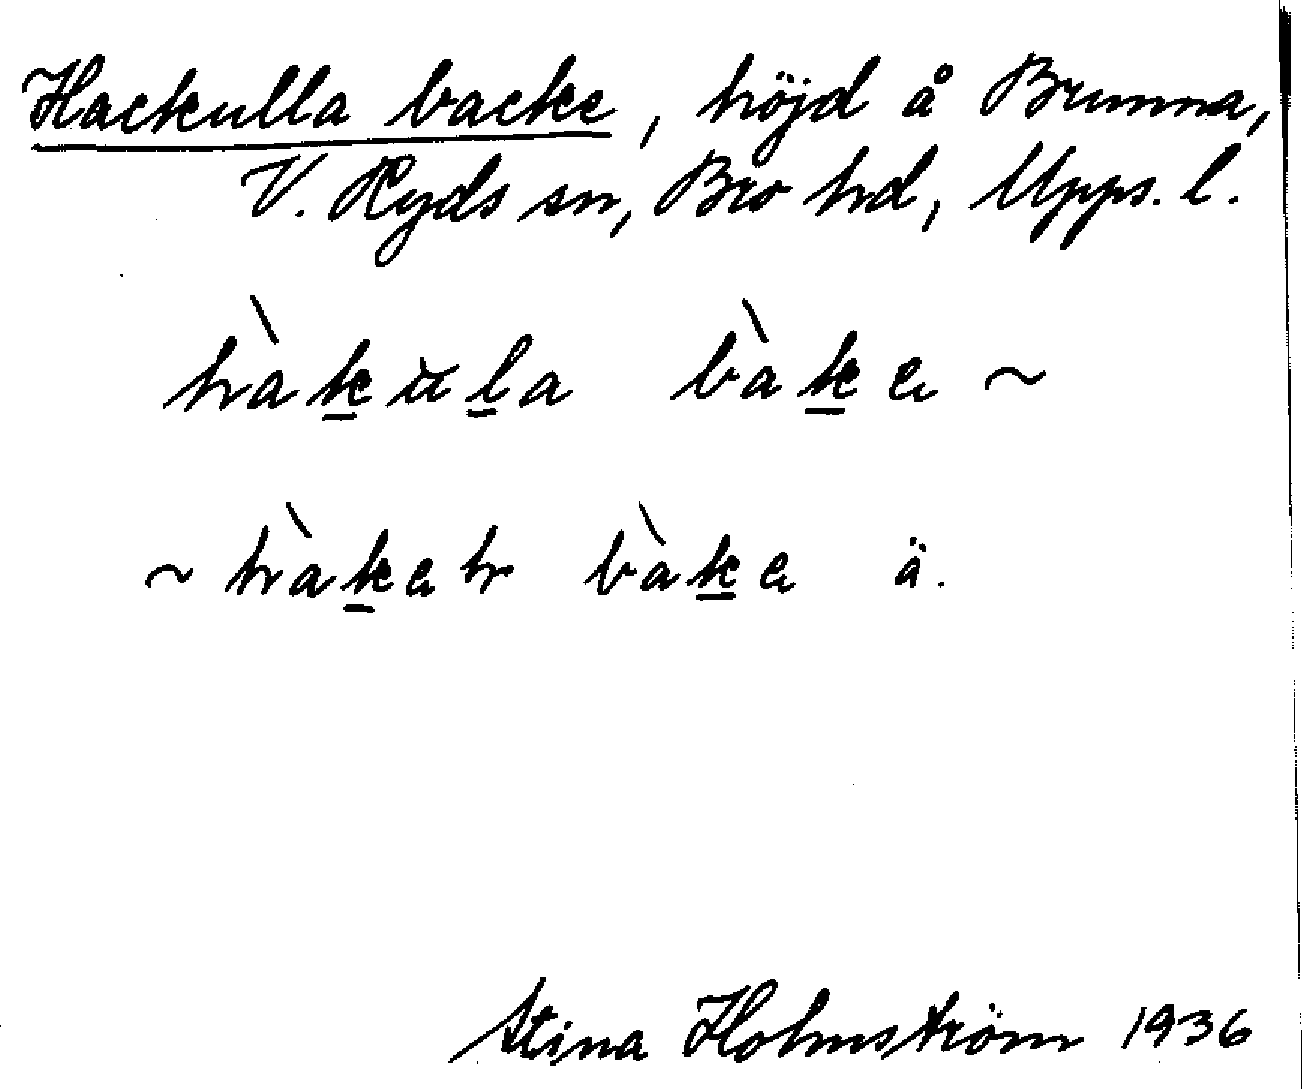 Hackulla backe, höjd å Brunna,
V. Ryds sn, Bro hd, Upps. l.
hàkula bàke ~
~ hàkeh bàke ä.
Stina Holmström 1936